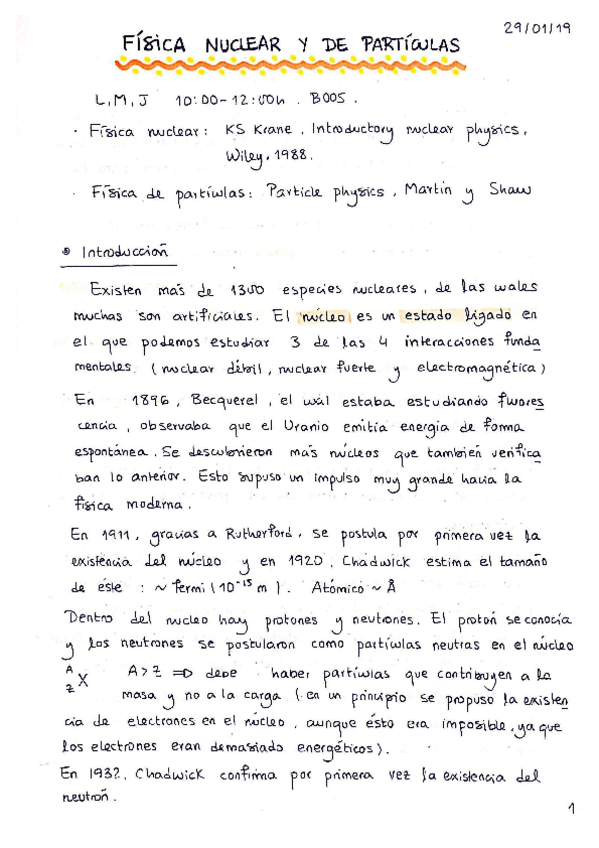 29/01/19
FÍSICA NUCLEAR Y DE PARTÍCULAS
L, M, J 10:00-12:00h. B005.
· Física nuclear: KS Krane, Introductory nuclear physics,
Wiley, 1988.
· Física de partículas: Particle physics, Martin y Shaw
Introducción
Existen más de 1300 especies nucleares, de las cuales
muchas son artificiales. El núcleo es un estado ligado en
el que podemos estudiar 3 de las 4 interacciones funda
mentales. (nuclear débil, nuclear fuerte y electromagnética)
En 1896, Becquerel, el cual estaba estudiando fluores
cencia, observaba que el Uranio emitía energía de forma
espontánea. Se descubrieron más núcleos que también verifica
ban lo anterior. Esto supuso un impulso muy grande hacia la
física moderna.
En 1911, gracias a Rutherford, se postula por primera vez la
existencia del núcleo y en 1920, Chadwick estima el tamaño
de éste : ~ fermi (10⁻¹⁵ m). Atómico ~ Å
Dentro del nucleo hay protones y neutrones. El protón se conocía
y los neutrones se postularon como partículas neutras en el núcleo
ᴬ_Z X A > Z => debe haber partículas que contribuyen a la
masa y no a la carga (en un principio se propuso la existen
cia de electrones en el núcleo, aunque ésto era imposible, ya que
los electrones eran demasiado energéticos).
En 1932, Chadwick confirma por primera vez la existencia del
neutrón.
1